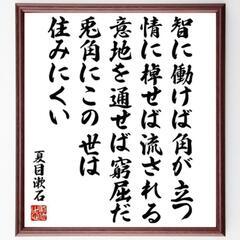 智に働けば角が立つ
情に棹せば流される
意地を通せば窮屈だ
兎角にこの世は
住みにくい
夏目漱石